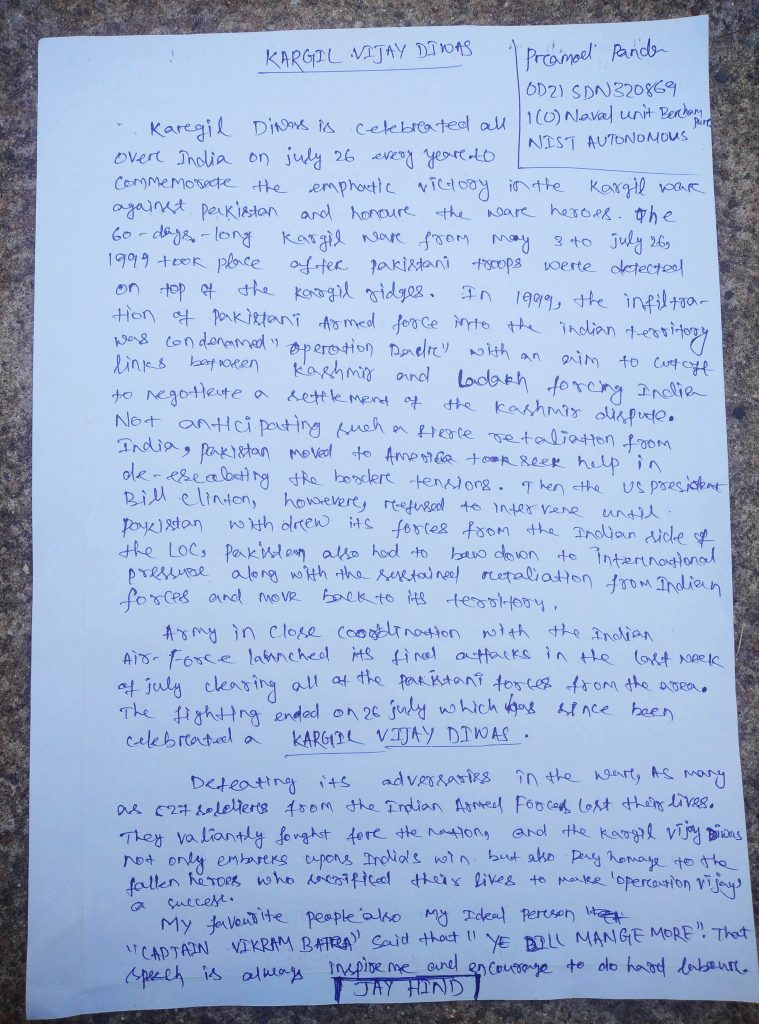 KARGIL VIJAY DIWAS
Preamod Panda
OD21 SDN320869
1(O) Naval unit Bercham
pure
NIST AUTONOMOUS
Karegil Diwas is celebreated all
overe India on july 26 every yeare to
commemorate the emphatic victory in the Kargil ware
against pakistan and honoure the ware heroes. The
60-days-long Kargil ware from may 3 to july 26,
1999 took place after pakistani troops were detected
on top of the kargil ridges. In 1999, the infiltra-
tion of pakistani Armed force into the indian territory
was condenamed "operation Badre" with an aim to cutoff
links between Kashmir and Ladakh forcing India
to negotiate a settlement of the Kashmir dispute.
Not anticipating such a fierce retaliation from
India, pakistan moved to America seek help in
de-escalating the bordere tensions. Then the US president
Bill Clinton, howevere, reefused to intervene until
pakistan with drew its forces from the Indian side of
the LOC, Pakistan also had to bow down to international
pressure along with the sustained retaliation from Indian
forces and move back to its territory.
Army in close coordination with the Indian
Air-Force launched its final attacks in the last week
of july clearing all of the pakistani forces from the area.
The fighting ended on 26 july which has since been
celebreated a KARGIL VIJAY DIWAS.
Defeating its adversaries in the ware, As many
as 527 soldieres from the Indian Armed Forces lost their lives.
They valiantly fought fore the nation, and the Kargil vijay Diwas
not only embarks upons India's win. but also Pay homage to the
fallen heroes who sacrificed their lives to make 'opercation vijay'
a success.
My favourite people also My Ideal Person
"CAPTAIN VIKRAM BATRA" Said that "YE DILL MANGE MORE". That
speech is always inspire me and encourage to do hard laboure.
JAY HIND